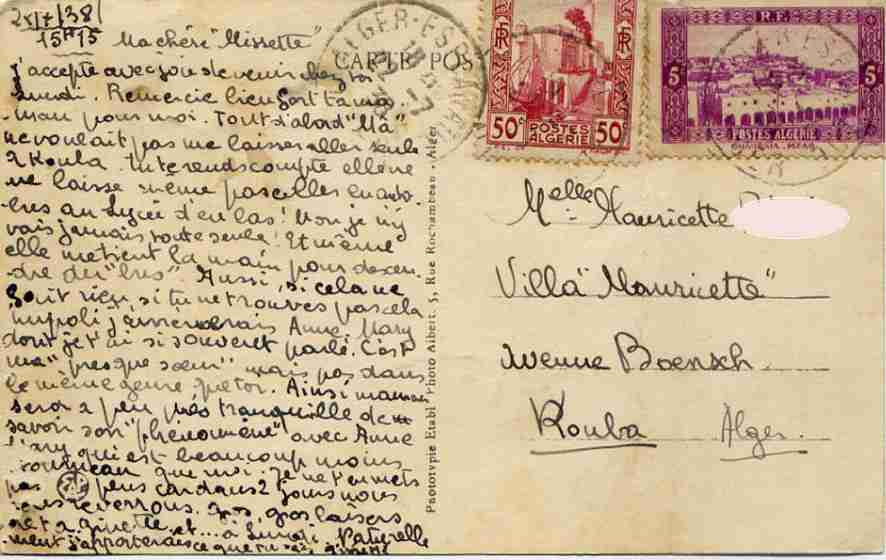 15H15
Ma chéri "Missette"
J'accepte avec joie de venir chez toi
Lundi. Remercie bien fort ta ma-
man pour moi. Tout d'abord "Mà"
ne voulait pas me laisser aller seule
à Kouba. Tu te rends compte elle ne
me laisse même pas
au lycée d'en bas! Non je n'y
vais jamais toute seule! Et même
elle me tient la main pour descen-
dre du "bus". Aussi, si cela ne
fait rien, si tu ne trouves pas cela
impoli j'emmènerais Anne-Mary
dont je t'ai si souvent parlé. C'est
ma "presque sœur" mais pas dans
le même genre que toi. Ainsi maman
sera à peu près tranquille de
savoir son "phénomène" avec Anne
Mary qui est beaucoup moins
que moi. Je ne t'en mets
pas plus car dans 2 jours nous
nous reverrons. gros, gros baisers
et à ginette et... à Lundi. Naturelle
ment j'apporterais ce que tu
CARTE POS
ALGER-ESPLANADE
50c POSTES ALGERIE 50c
R.F.
5c 5c
POSTES ALGERIE
Phototypie Etabl Photo Albert, 5, Rue Rochambeau - Alger
Melle Mauricette
Villa "Mauricette"
Avenue Boensch
Kouba Alger